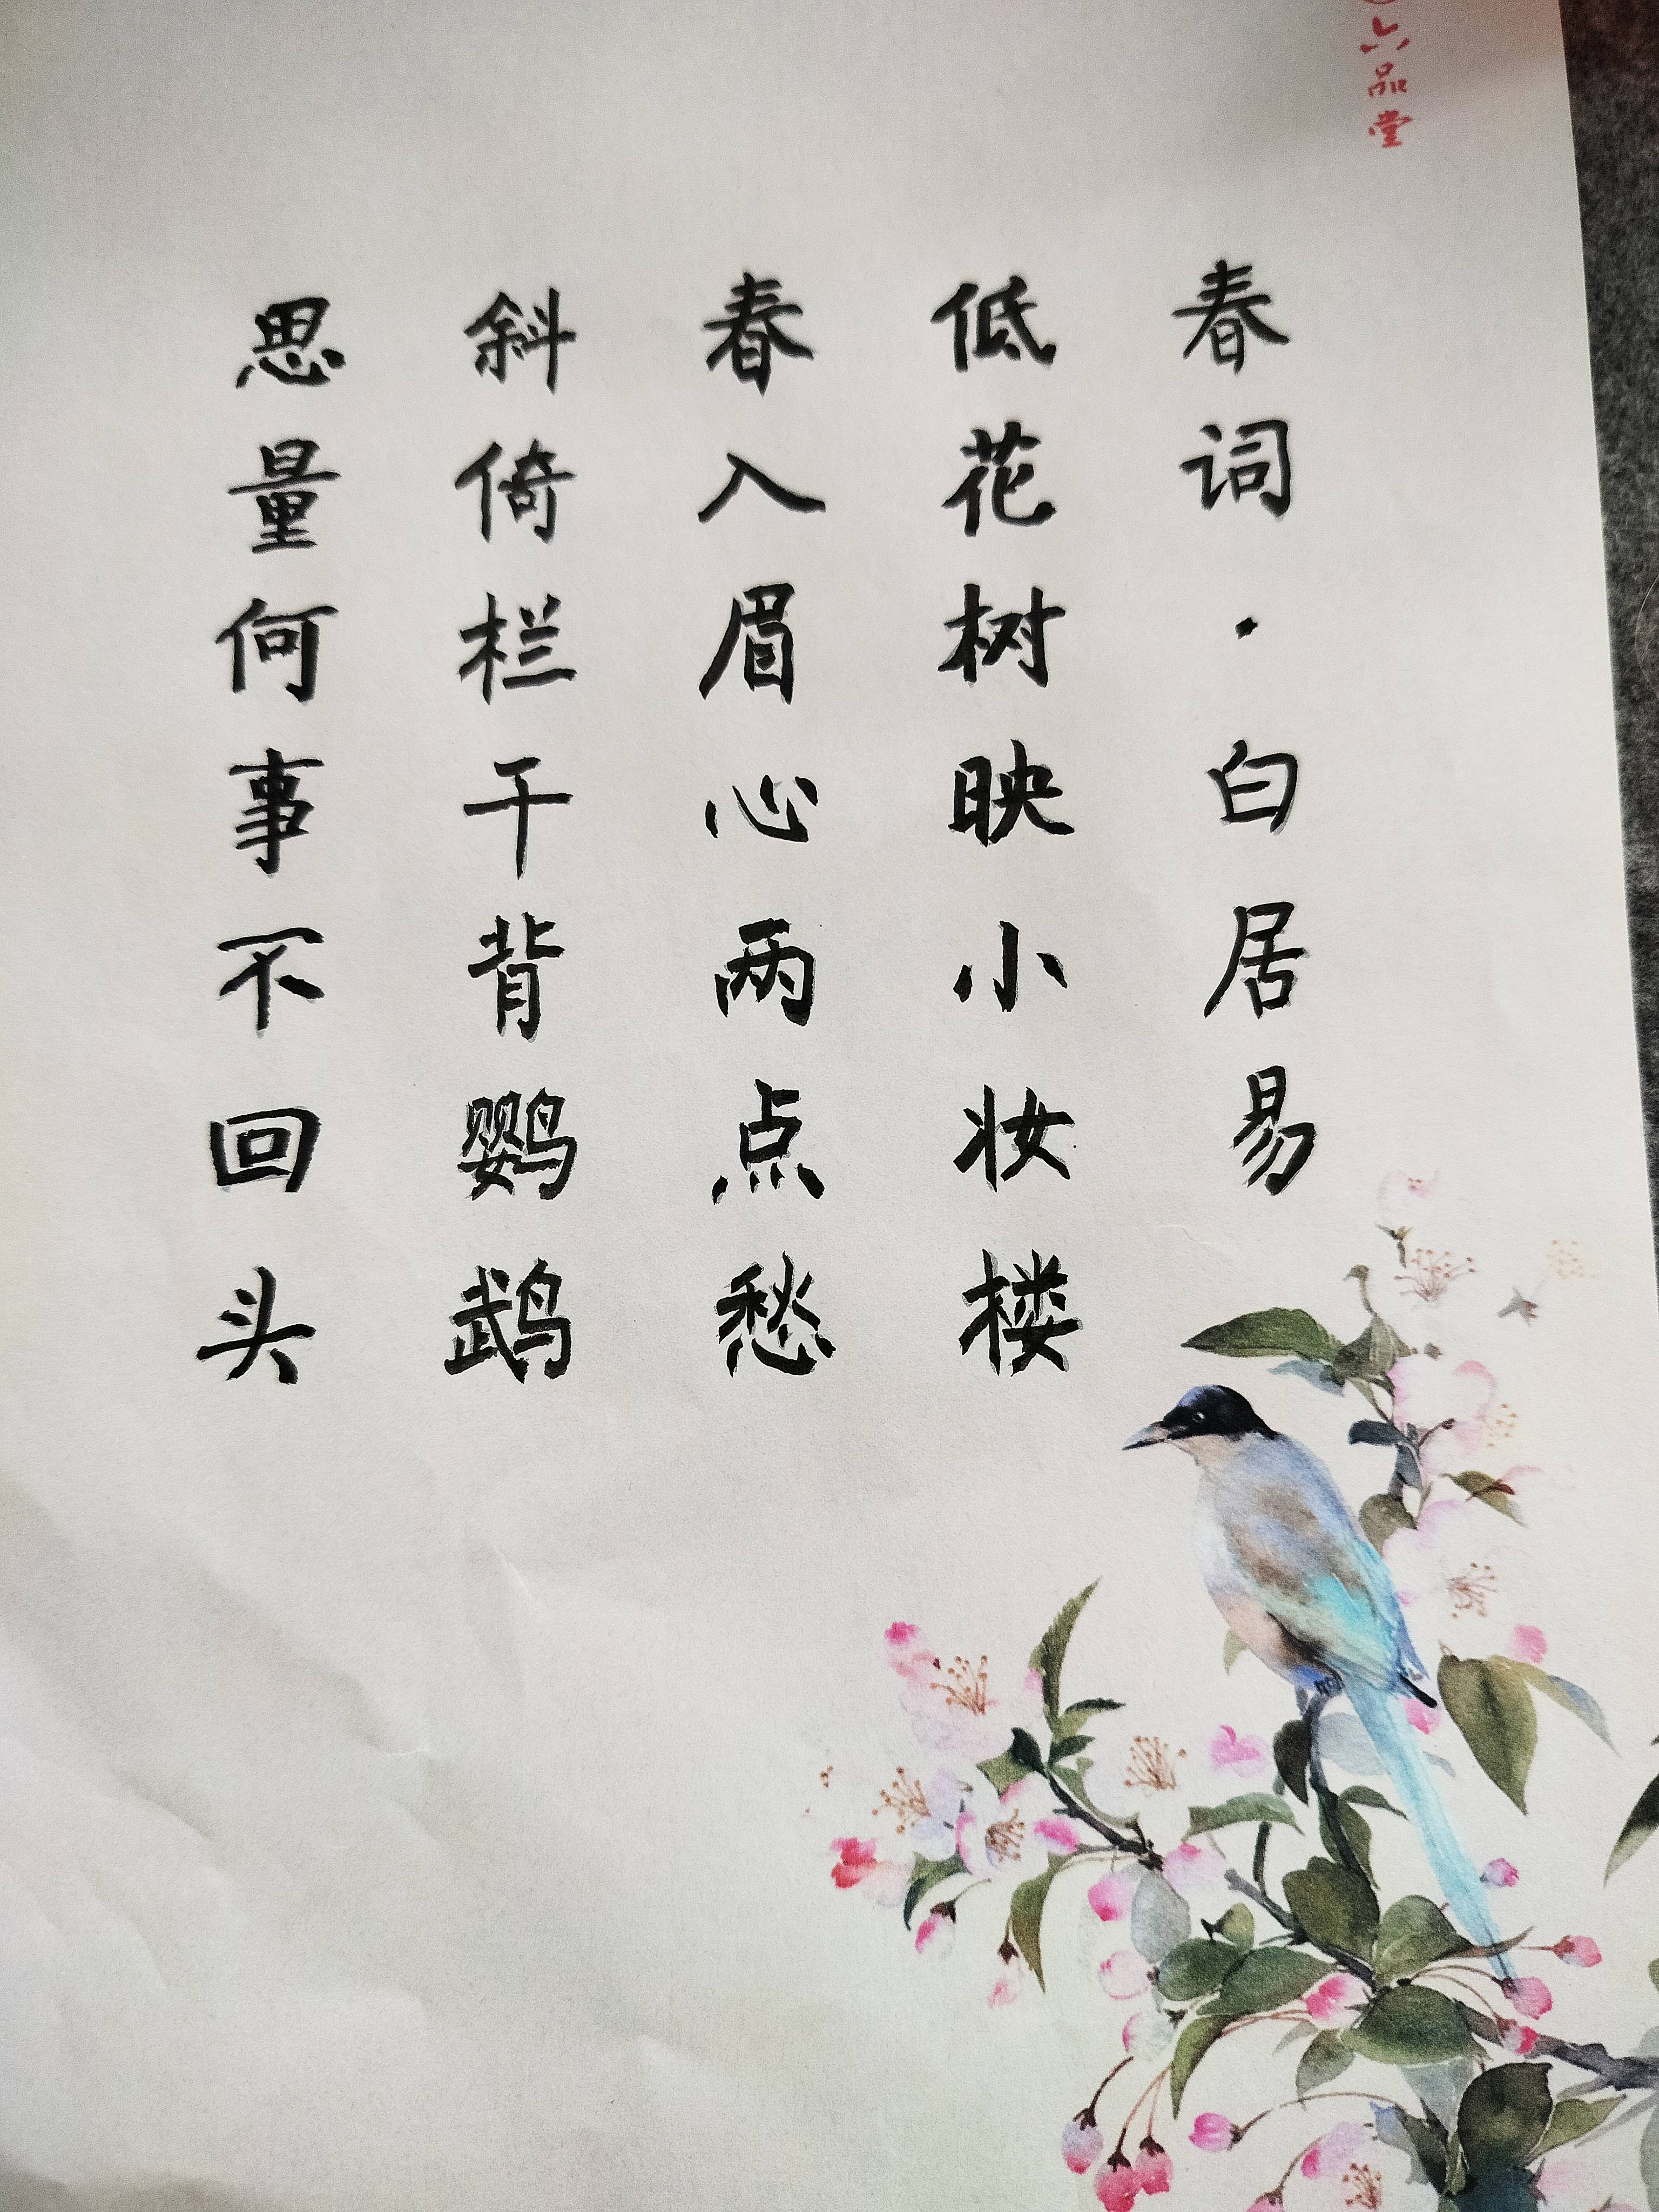 六品堂
春词·白居易
低花树映小妆楼
春入眉心两点愁
斜倚栏干背鹦鹉
思量何事不回头